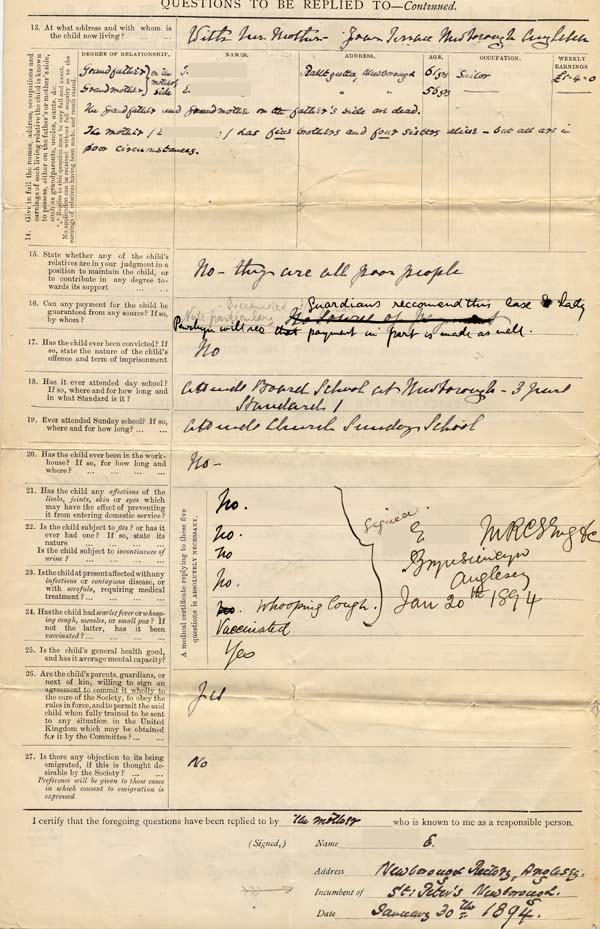 QUESTIONS TO BE REPLIED TO—Continued.
13. At what address and with whom is the child now living? ... ...
With her mother - Terrace Newborough Anglesea
14. Give in full the names, address, occupations and earnings of each living relative the child is known to possess, either on the father's or mother's side, such as grandparents, uncles, aunts, &c.
*** Replies to this question must be very full and exact. No application can be received without full enquiry as to the earnings of relatives having been made, and result stated.
DEGREE OF RELATIONSHIP.
NAMES.
ADDRESS.
AGE.
OCCUPATION.
WEEKLY EARNINGS
Grandfather } on the mother's side
Newborough
61 yrs
Sailor
£1-4-0
Grandmother
" "
56 yrs
The Grandfather and Grandmother on the father's side are dead.
The mother /E /has five brothers and four sisters alive - but all are in
poor circumstances.
15. State whether any of the child's relatives are in your judgment in a position to maintain the child, or to contribute in any degree towards its support ... ...
No - they are all poor people
16. Can any payment for the child be guaranteed from any source? If so, by whom? ... ... ...
Guardians reccomend this case & Lady
Penrhyn will see that payment in part is made as well.
17. Has the child ever been convicted? If so, state the nature of the child's offence and term of imprisonment
No
18. Has it ever attended day school? If so, where and for how long and in what Standard is it? ...
Attends Board School at Newborough - 3 years
Standard 1
19. Ever attended Sunday school? If so, where and for how long? ... ...
Attends Church Sunday School
20. Has the child ever been in the workhouse? If so, for how long and where? ... ... ... ...
No -
A medical certificate replying to these five questions is ABSOLUTELY NECESSARY.
21. Has the child any affections of the limbs, joints, skin or eyes which may have the effect of preventing it from entering domestic service?
No.
22. Is the child subject to fits? or has it ever had one? If so, state its nature ... ... ...
No.
Is the child subject to incontinence of urine? ... ... ... ...
No
23. Is the child at present affected with any infectious or contagious disease, or with scrofula, requiring medical treatment? ... ... ...
No.
24. Has the child had scarlet fever or whooping cough, measles, or small pox? If not the latter, has it been vaccinated? ... ... ...
Whooping Cough.
Vaccinated
25. Is the child's general health good, and has it average mental capacity?
Yes
Signed
E MRCS Eng &c
Anglesey
Jan 20th 1894
26. Are the child's parents, guardians, or next of kin, willing to sign an agreement to commit it wholly to the care of the Society, to obey the rules in force, and to permit the said child when fully trained to be sent to any situation in the United Kingdom which may be obtained for it by the Committee? ... ...
Yes
27. Is there any objection to its being emigrated, if this is thought desirable by the Society? ... ...
Preference will be given to those cases in which consent to emigration is expressed.
No
I certify that the foregoing questions have been replied to by the mother who is known to me as a responsible person.
(Signed,) Name E.
Address Newborough Rectory, Anglesey.
Incumbent of St: Peter's Newborough.
Date January 30th 1894.